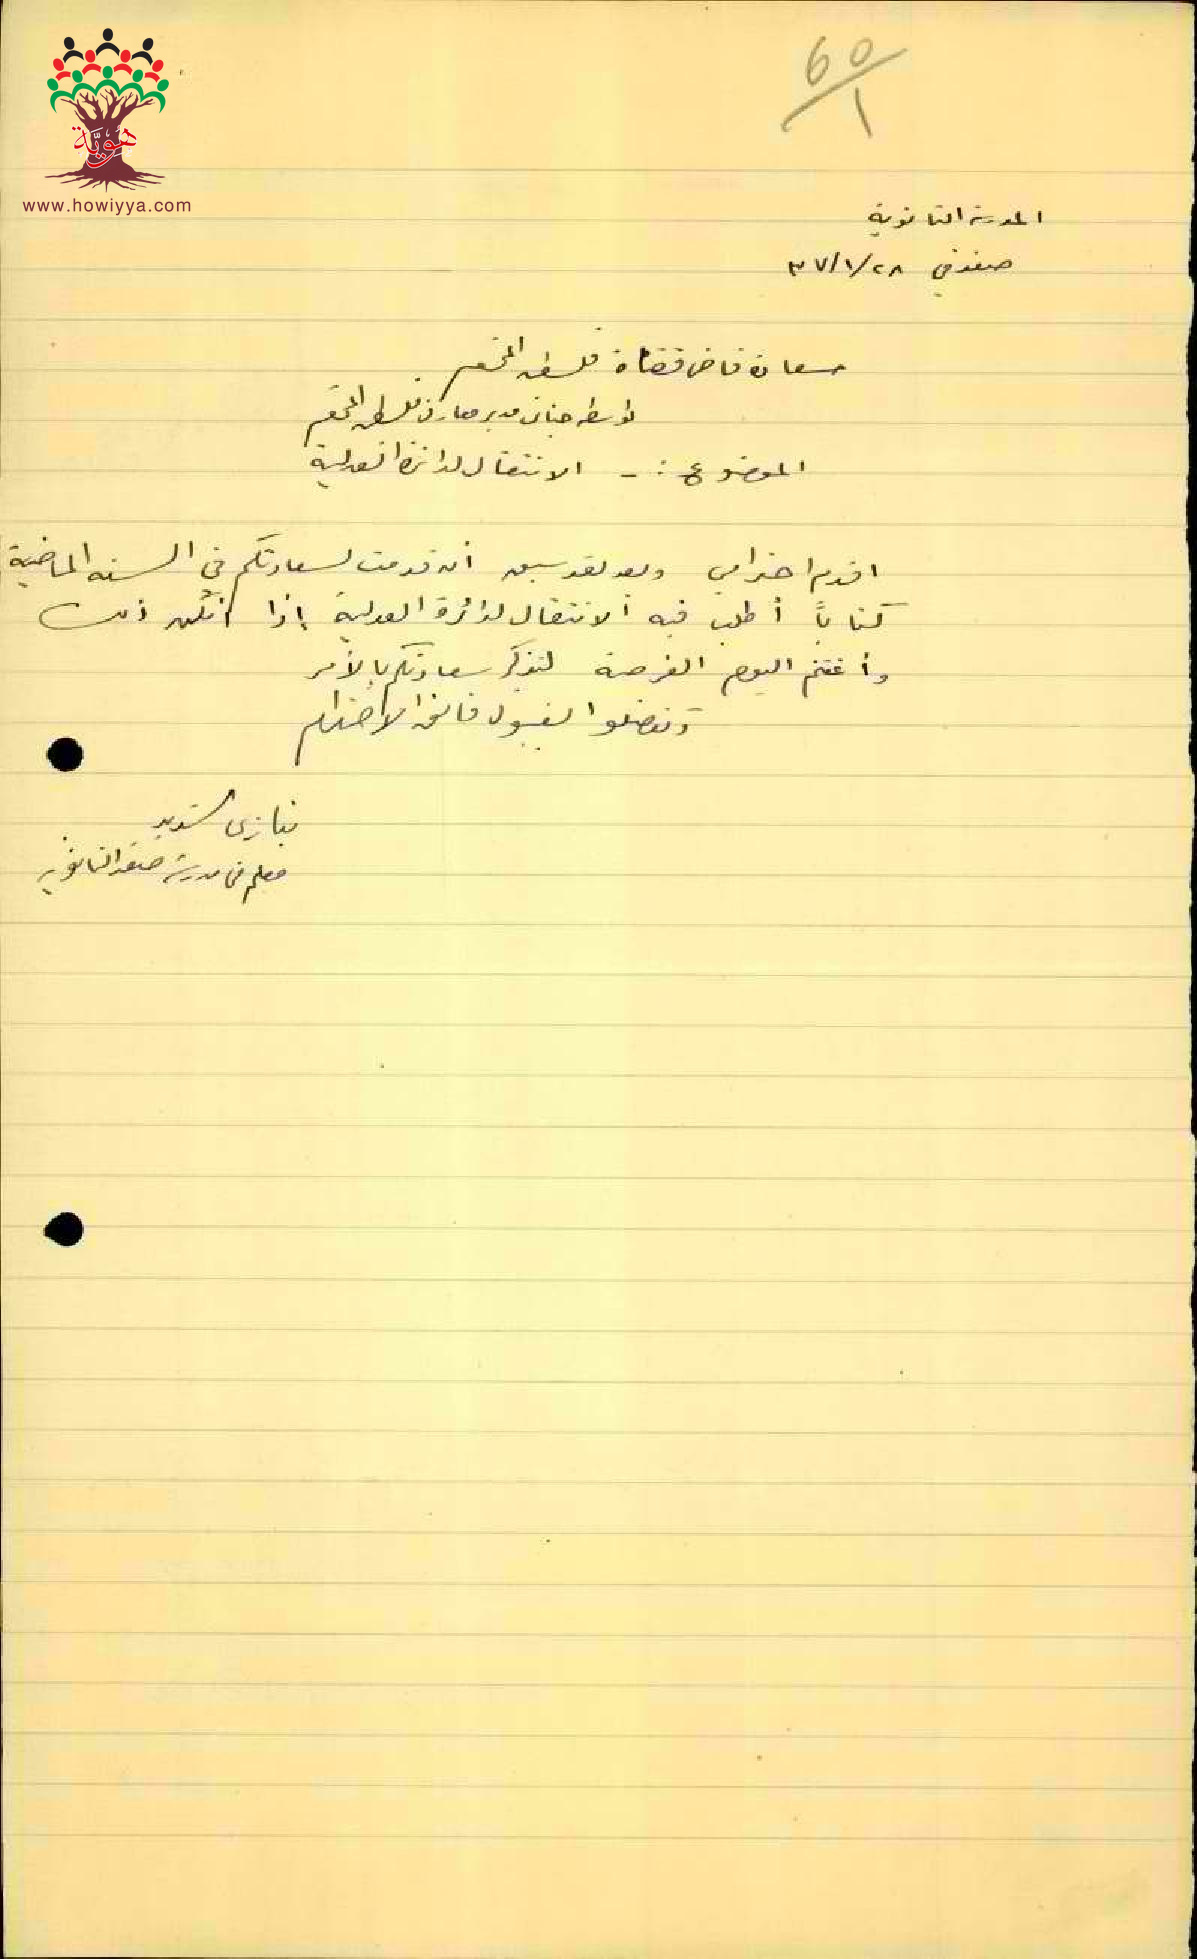 هوية
www.howiyya.com
60/1
المدرسة الثانوية
صفد في ٢٨/١/٣٧
سعادة قاضي قضاة فلسطين المحترم
بواسطة جناب مدير معارف فلسطين المحترم
الموضوع :- الانتقال لدائرة العدلية
اقدم احترامي وبعد لقد سبق أن قدمت لسعادتكم في السنة الماضية
كتاباً أطلب فيه الانتقال لدائرة العدلية إذا أمكن ذلك
وأغتنم اليوم الفرصة لتذكير سعادتكم بالأمر
وتفضلوا بقبول فائق الاحترام
نيازي
معلم في مدرسة صفد الثانوية